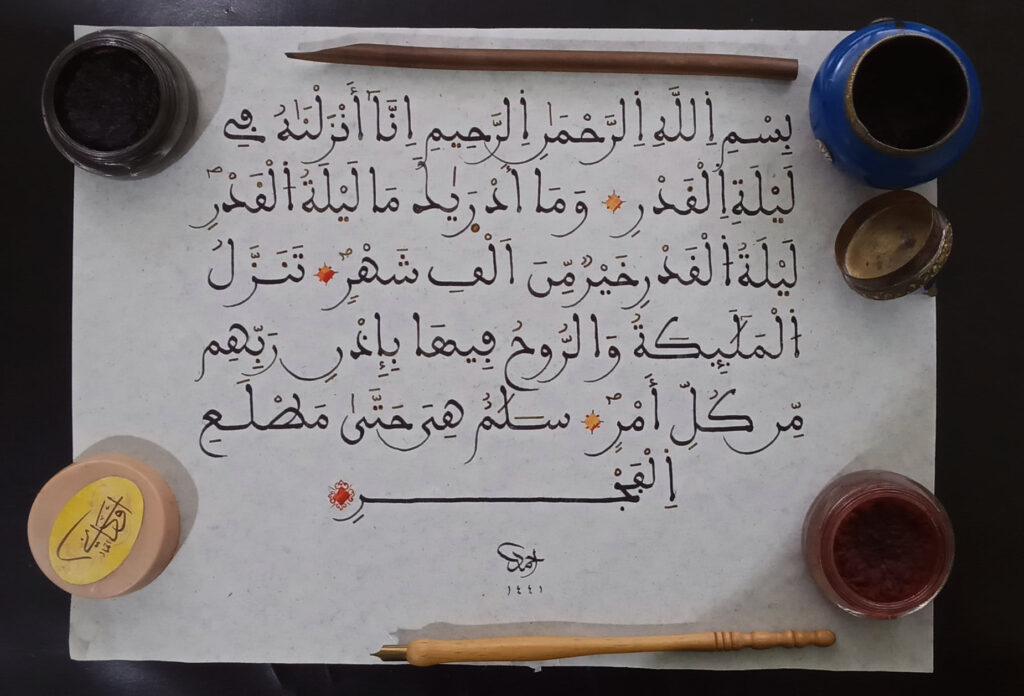 بِسْمِ اِ۬للَّهِ اِ۬لرَّحْمَٰنِ اِ۬لرَّحِيمِ اِنَّآ أَنْزَلْنَٰهُ فِے
لَيْلَةِ اِ۬لْقَدْرِ وَمَآ أَدْرَيٰكَ مَا لَيْلَةُ اُ۬لْقَدْرِ
لَيْلَةُ اُ۬لْقَدْرِ خَيْرٌ مِّنَ اَلْفِ شَهْرٍ تَنَزَّلُ
اُ۬لْمَلَٰٓئِكَةُ وَالرُّوحُ فِيهَا بِإِذْنِ رَبِّهِم
مِّن كُلِّ أَمْرٍ سَلَٰمٌ هِيَ حَتَّىٰ مَطْلَعِ
اِ۬لْفَجْرِ
١٤٤١